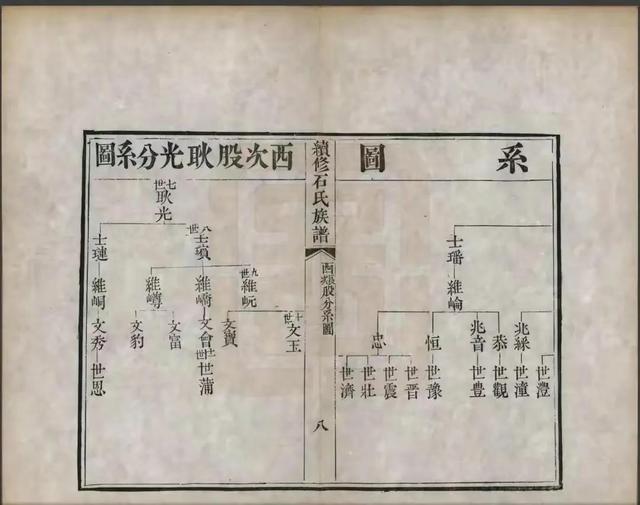 系圖
士璠
維崙
兆綵 恭 兆音 恒 忠
世澧 世潼 世觀 世豊 世豫 世晋 世震 世壯 世濟
續修石氏族譜
八
西次股耿光分系圖
七世 耿光
八世 士瓆
士璉
九世 維岏
維嶠
維嶟
維峒
十世 文玉
文寶
文會
文富
文豹
文秀
十一世 世蒲
世思